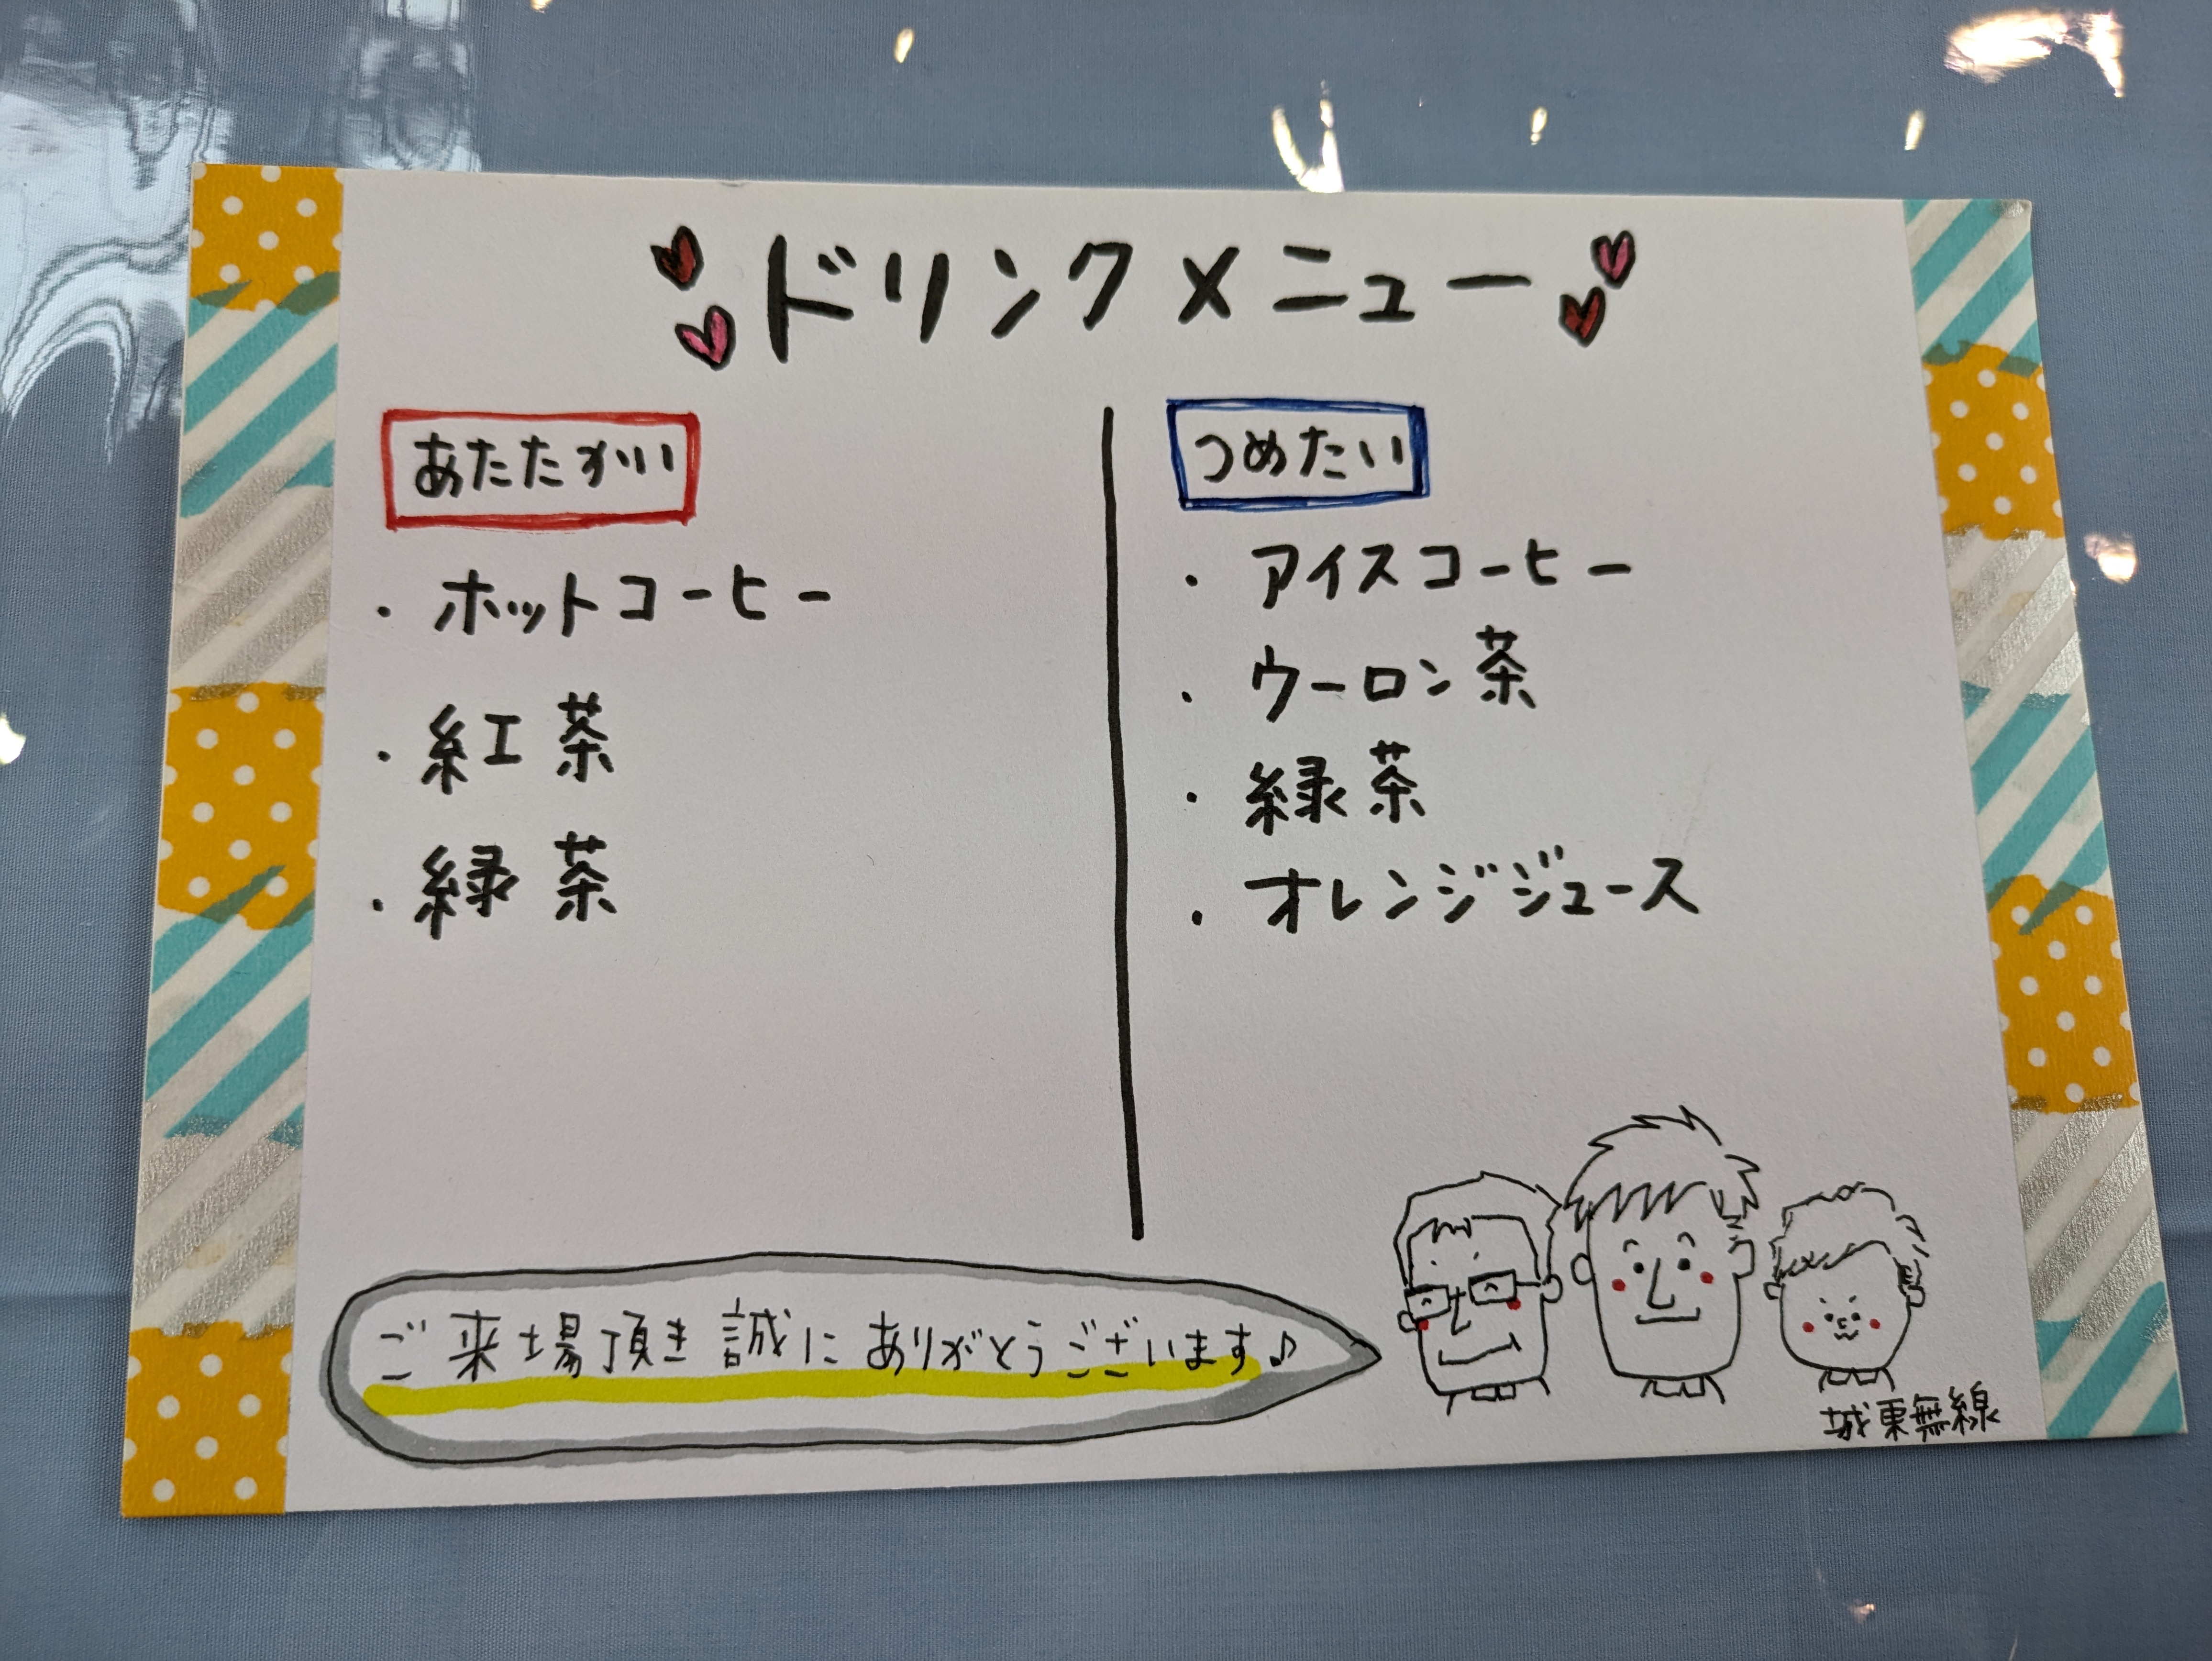 ドリンクメニュー
あたたかい
・ホットコーヒー
・紅茶
・緑茶
つめたい
・アイスコーヒー
・ウーロン茶
・緑茶
・オレンジジュース
ご来場頂き誠にありがとうございます♪
城東無線